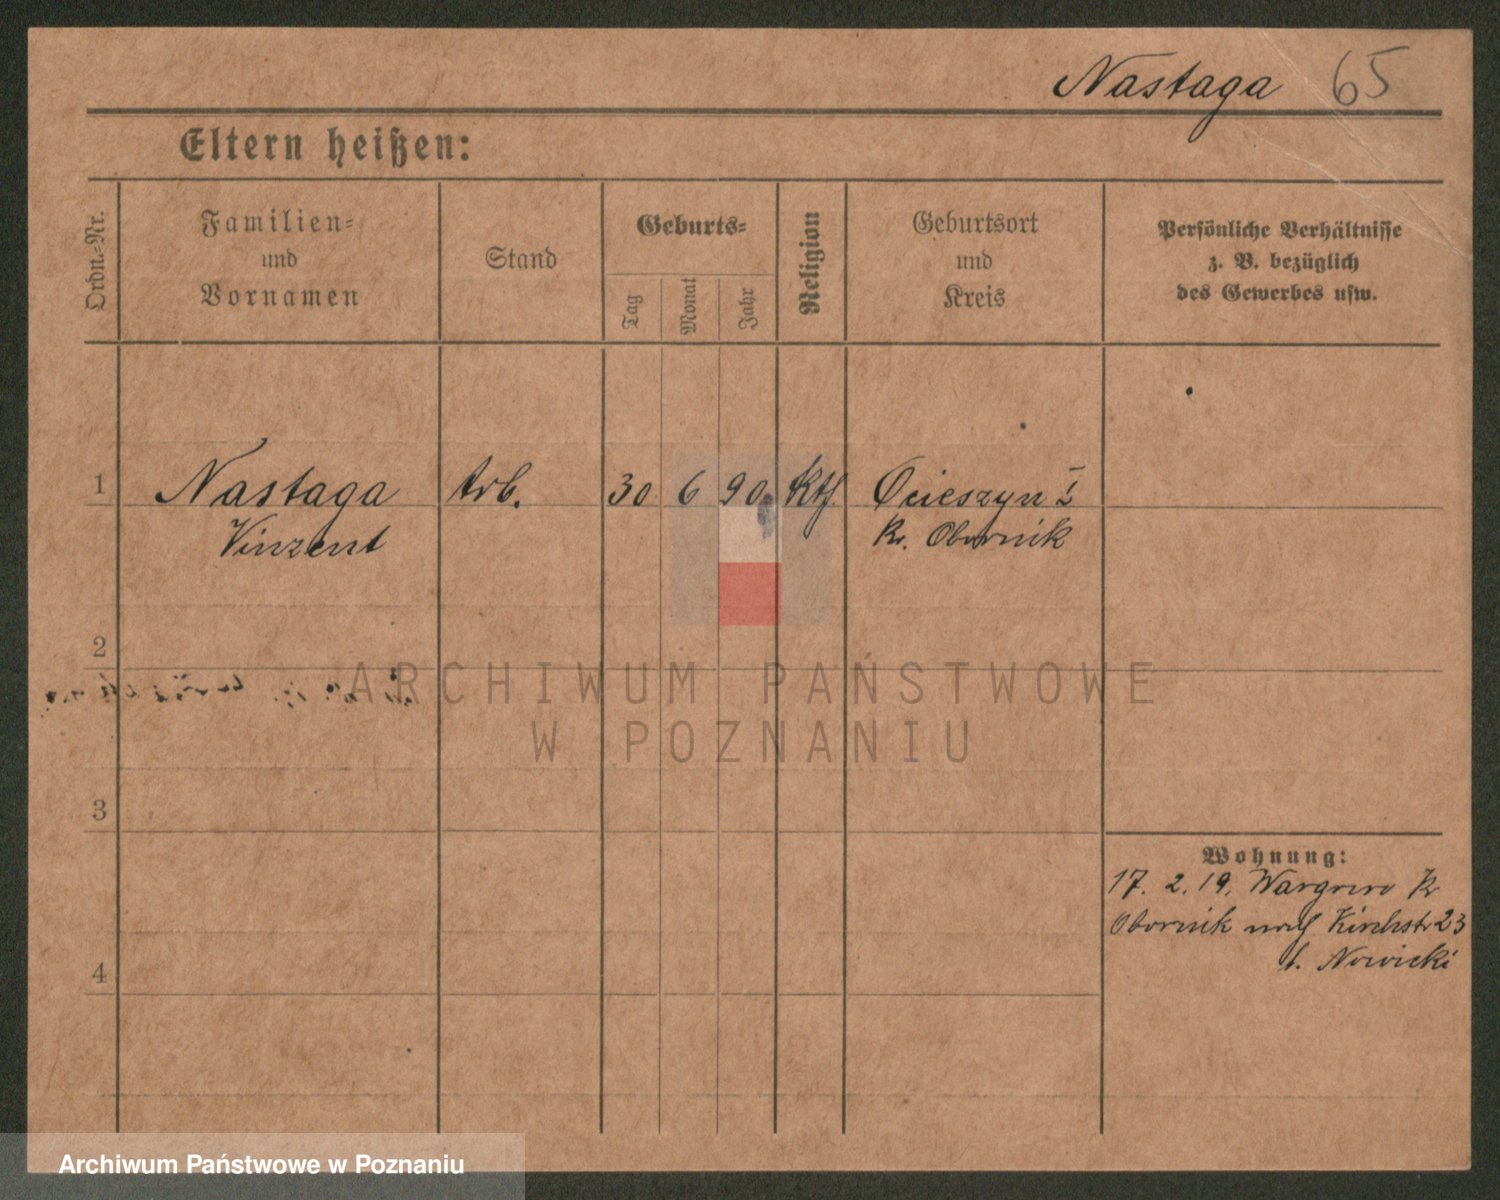 Nastaga 65
Eltern heißen:
Ordn.-Nr.
Familien-
und
Vornamen
Stand
Geburts-
Tag
Monat
Jahr
Religion
Geburtsort
und
Kreis
Persönliche Verhältnisse
z. B. bezüglich
des Gewerbes usw.
1 Nastaga Arb. 30 6 90 Kth. Ocieszyn
Vinzent Kr. Obornik
2
ARCHIWUM PAŃSTWOWE
W POZNANIU
3
Wohnung:
17. 2. 19. Wargowo Kr
Obornik nach Kirchstr 23
b. Nowicki
4
Archiwum Państwowe w Poznaniu